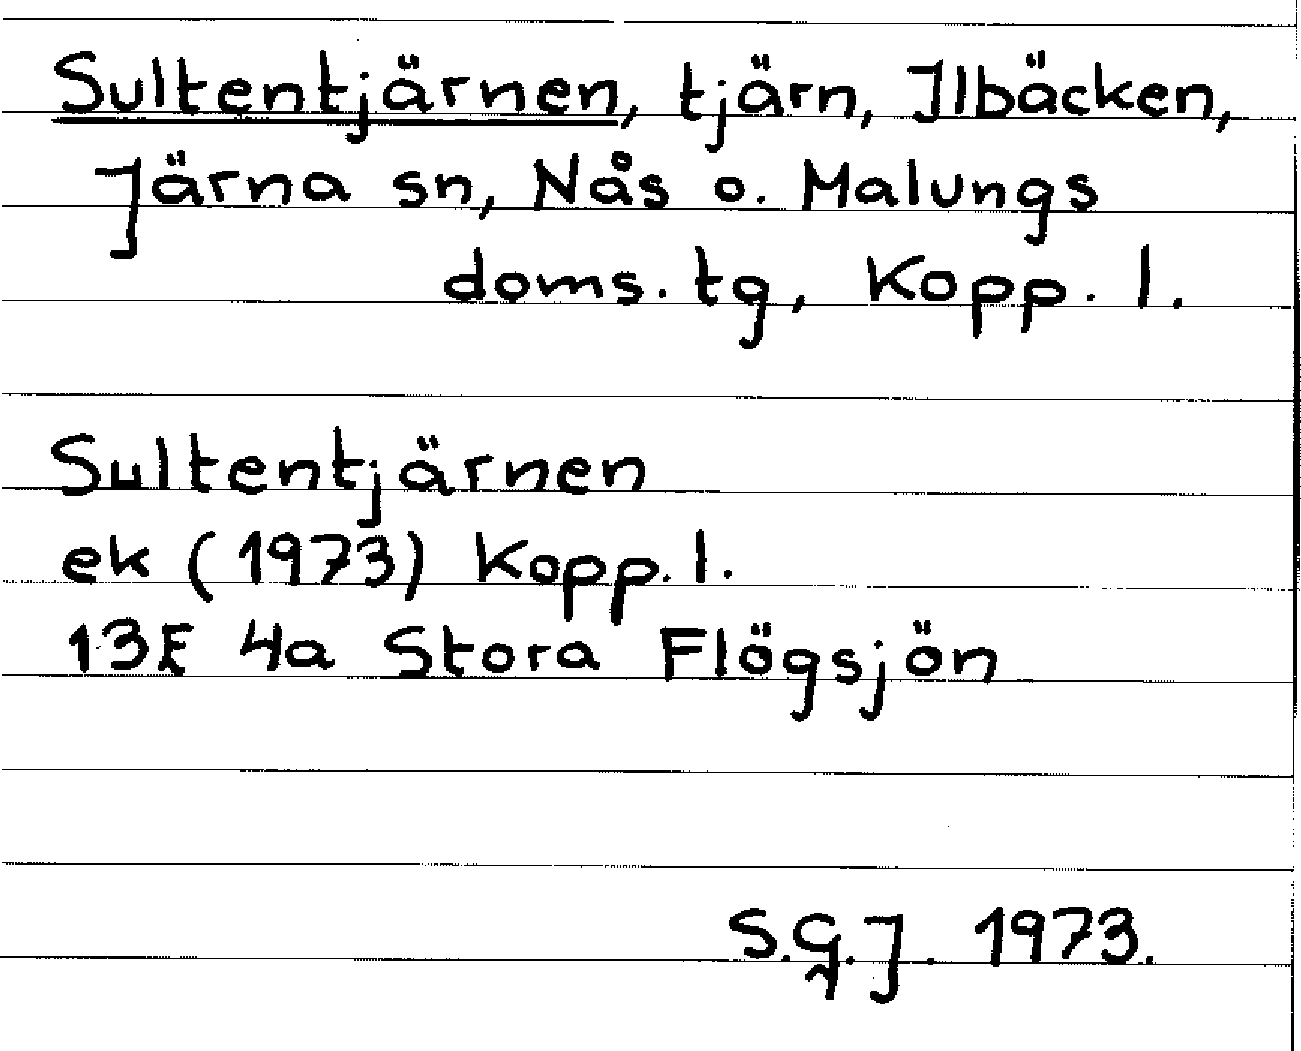 Sultentjärnen, tjärn, Ilbäcken,
Järna sn, Nås o. Malungs
doms. tg, Kopp. l.
Sultentjärnen
ek (1973) Kopp. l.
13E 4a Stora Flögsjön
S.G.J. 1973.